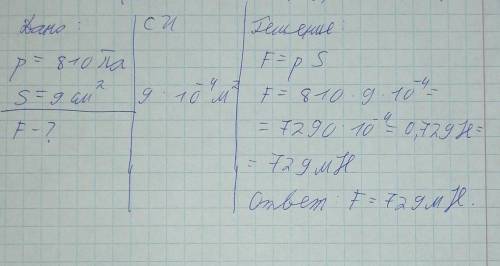 Дано:
p = 810 Па
S = 9 см²
F - ?
СИ
9 · 10⁻⁴ м²
Решение:
F = p S
F = 810 · 9 · 10⁻⁴ =
= 7290 · 10⁻⁴ = 0,729 Н =
= 729 мН
Ответ: F = 729 мН.